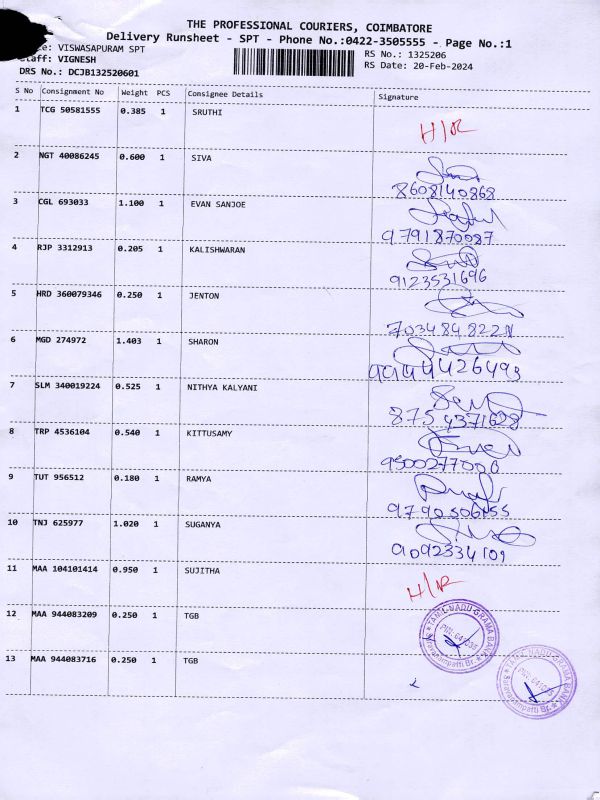 THE PROFESSIONAL COURIERS, COIMBATORE
Delivery Runsheet - SPT - Phone No.:0422-3505555 - Page No.:1
VISWASAPURAM SPT
RS No.: 1325206
Staff: VIGNESH
RS Date: 20-Feb-2024
DRS No.: DCJB132520601
S No Consignment No Weight PCS Consignee Details Signature
1 TCG 50581555 0.385 1 SRUTHI H/R
2 NGT 40086245 0.600 1 SIVA
8608140868
3 CGL 693033 1.100 1 EVAN SANJOE
9791870087
4 RJP 3312913 0.205 1 KALISHWARAN
9123531696
5 HRD 360079346 0.250 1 JENTON
6 MGD 274972 1.403 1 SHARON
7 SLM 340019224 0.525 1 NITHYA KALYANI
8754371628
8 TRP 4536104 0.540 1 KITTUSAMY
9 TUT 956512 0.180 1 RAMYA
10 TNJ 625977 1.020 1 SUGANYA
9092334109
11 MAA 104101414 0.950 1 SUJITHA H/R
12 MAA 944083209 0.250 1 TGB
TAMIL NADU GRAMA BANK
Saravanampatti Br.
13 MAA 944083716 0.250 1 TGB
TAMIL NADU GRAMA BANK
Saravanampatti Br.